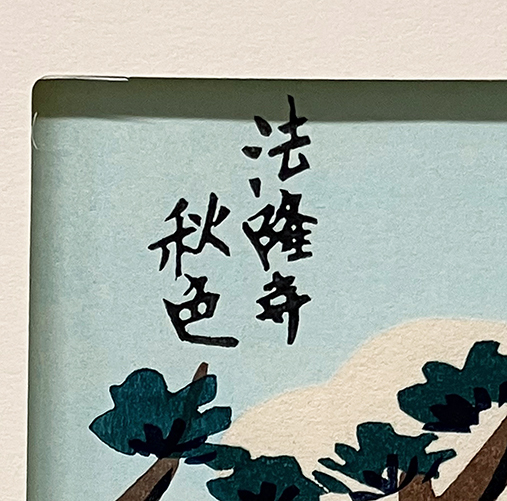 法隆寺
秋色